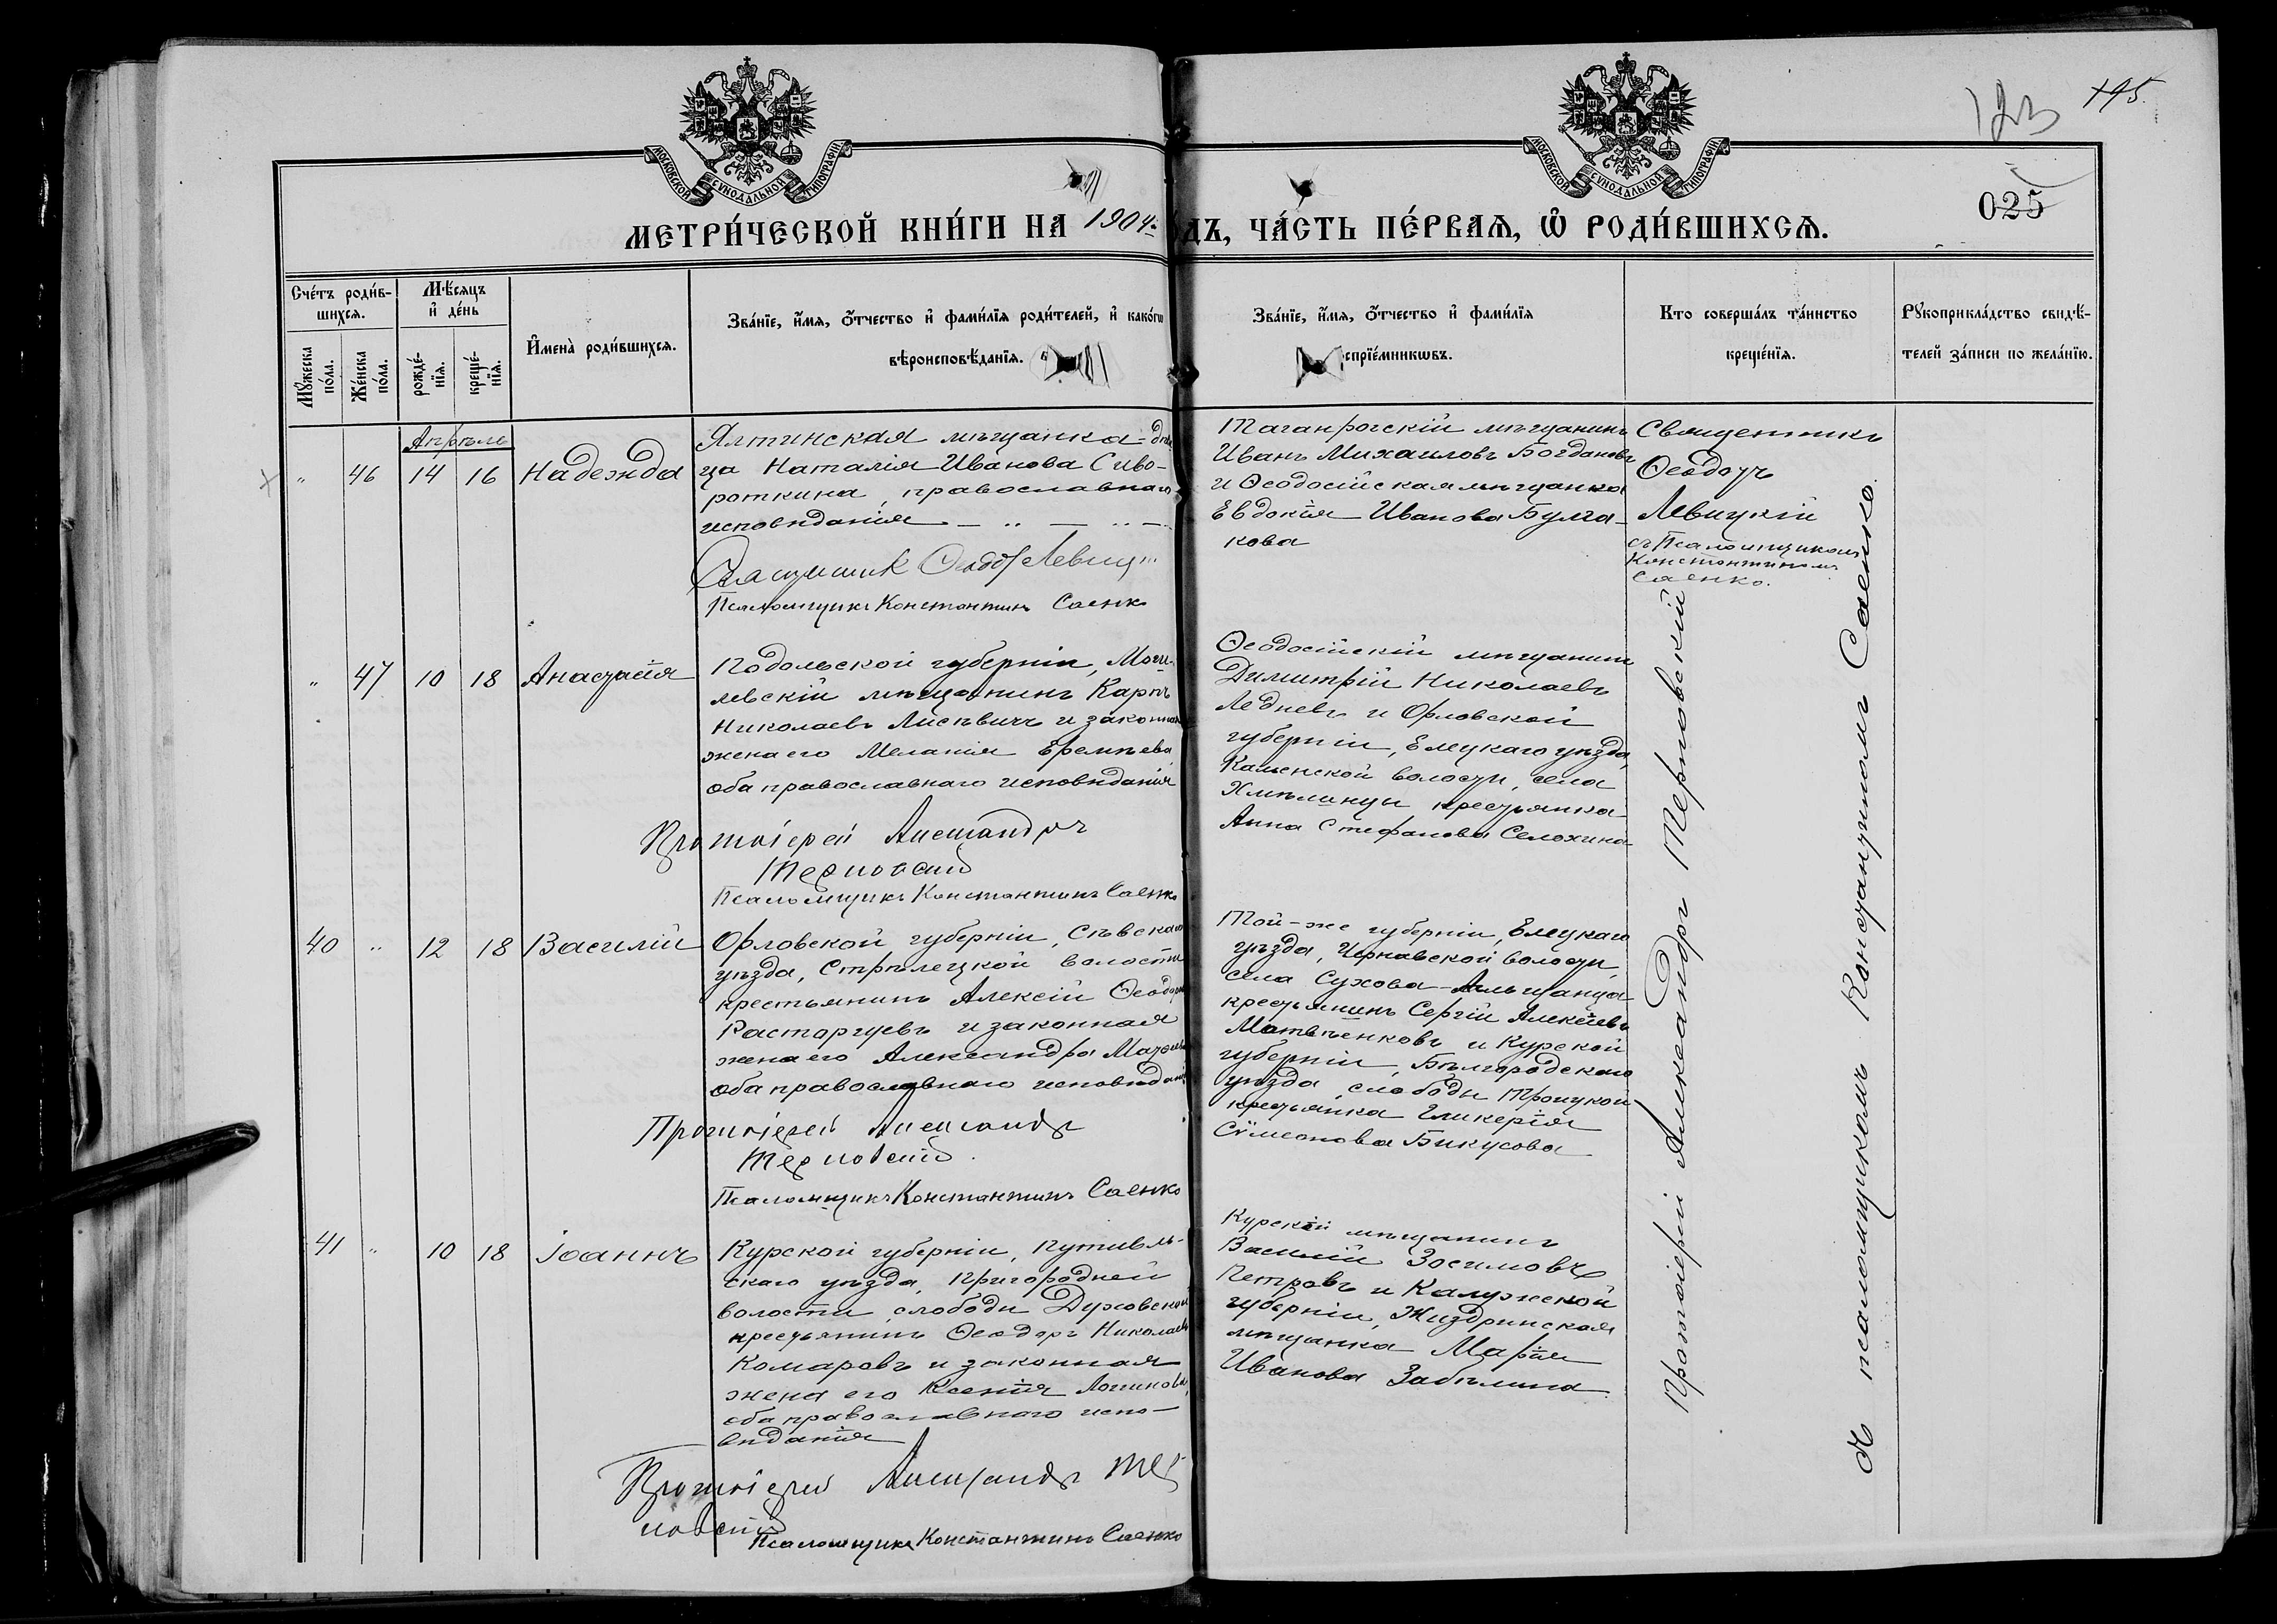 МОСКОВСКОЙ СѴНОДАЛЬНОЙ ТИПОГРАФІИ
МОСКОВСКОЙ СѴНОДАЛЬНОЙ ТИПОГРАФІИ
123
025
МЕТРИ́ЧЕСКОЙ КНИ́ГИ НА 1904 дъ, ЧА́СТЬ ПЕ́РВАѦ, Ѡ҆ РОДИ́ВШИХСѦ.
Сче́тъ роди́в-
шихсѧ.
Мꙋ́жеска
по́ла.
Же́нска
по́ла.
Мѣ́сѧцъ
и҆ де́нь
рожде́-
нїѧ.
креще́-
нїѧ.
И҆мена̀ роди́вшихсѧ.
Зва́нїе, и҆́мѧ, ѻ҆́тчество и҆ фами́лїѧ роди́телей, и҆ како́гѡ
вѣроисповѣ́данїѧ.
Зва́нїе, и҆́мѧ, ѻ҆́тчество и҆ фами́лїѧ
спрїе́мникѡвъ.
Кто соверша́лъ та́инство
креще́нїѧ.
Рꙋкоприкла́дство свидѣ́-
телей за́писи по жела́нїю.
Апрѣль
" 46 14 16 Надежда
Ялтинская мѣщанка-дѣви
ца Наталія Иванова Сиво-
роткина, православнаго
исповѣданія
Священник Ѳеодор Левиц
Псаломщикъ Константинъ Саенко
Таганрогскій мѣщанинъ
Иванъ Михаиловъ Богдановъ
и Ѳеодосійская мѣщанка
Евдокія Иванова Булга-
кова
Священникъ
Ѳеодоръ
Левицкій
съ Псаломщикомъ
Константиномъ
Саенко.
" 47 10 18 Анастасія
Подольской губерніи, Моги-
левскій мѣщанинъ Карпъ
Николаевъ Лисѣвичъ и законная
жена его Меланія Еремѣева
оба православнаго исповѣданія
Протоіерей Александръ
Терновскій
Псаломщикъ Константинъ Саенко
Ѳеодосійскій мѣщанинъ
Димитрій Николаевъ
Ледневъ и Орловской
губерніи, Елецкаго уѣзда,
Каменской волости, села
Хмѣлинцы крестьянка
Анна Стефанова Селохина
40 " 12 18 Василій
Орловской губерніи, Сѣвскаго
уѣзда, Стрѣлецкой волости
крестьянинъ Алексій Ѳеодоровъ
Расторгуевъ и законная
жена его Александра
оба православнаго исповѣданія
Протоіерей Александръ
Терновскій
Псаломщикъ Константинъ Саенко
Той-же губерніи, Елецкаго
уѣзда, Чернавской волости,
села Сухова-Альшанца
крестьянинъ Сергій Алексіевъ
Матвѣенковъ и Курской
губерніи, Бѣлгородскаго
уѣзда, слободы Троицкой
крестьянка Гликерія
Сѵмеонова Бикусова
41 " 10 18 Іоаннъ
Курской губерніи, Путивль-
скаго уѣзда, Пригородней
волости, слободы Духовской
крестьянинъ Ѳеодоръ Николаевъ
Комаровъ и законная
жена его Ксенія Логинова,
оба православнаго испо-
вѣданія
Протоіерей Александръ Тер
новскій
Псаломщикъ Константинъ Саенко
Курскій мѣщанинъ
Василій Зосимовъ
Петровъ и Калужской
губерніи, Жиздринская
мѣщанка Марія
Иванова Забѣлина
Протоіерей Александръ Терновскій
съ псаломщикомъ Константиномъ Саенко.